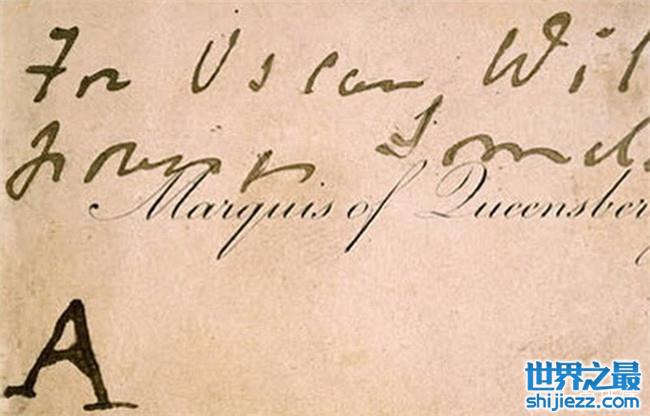 For Oscar Wil
posing Somd
Marquis of Queensber
A
世界之最
shijiezz.com